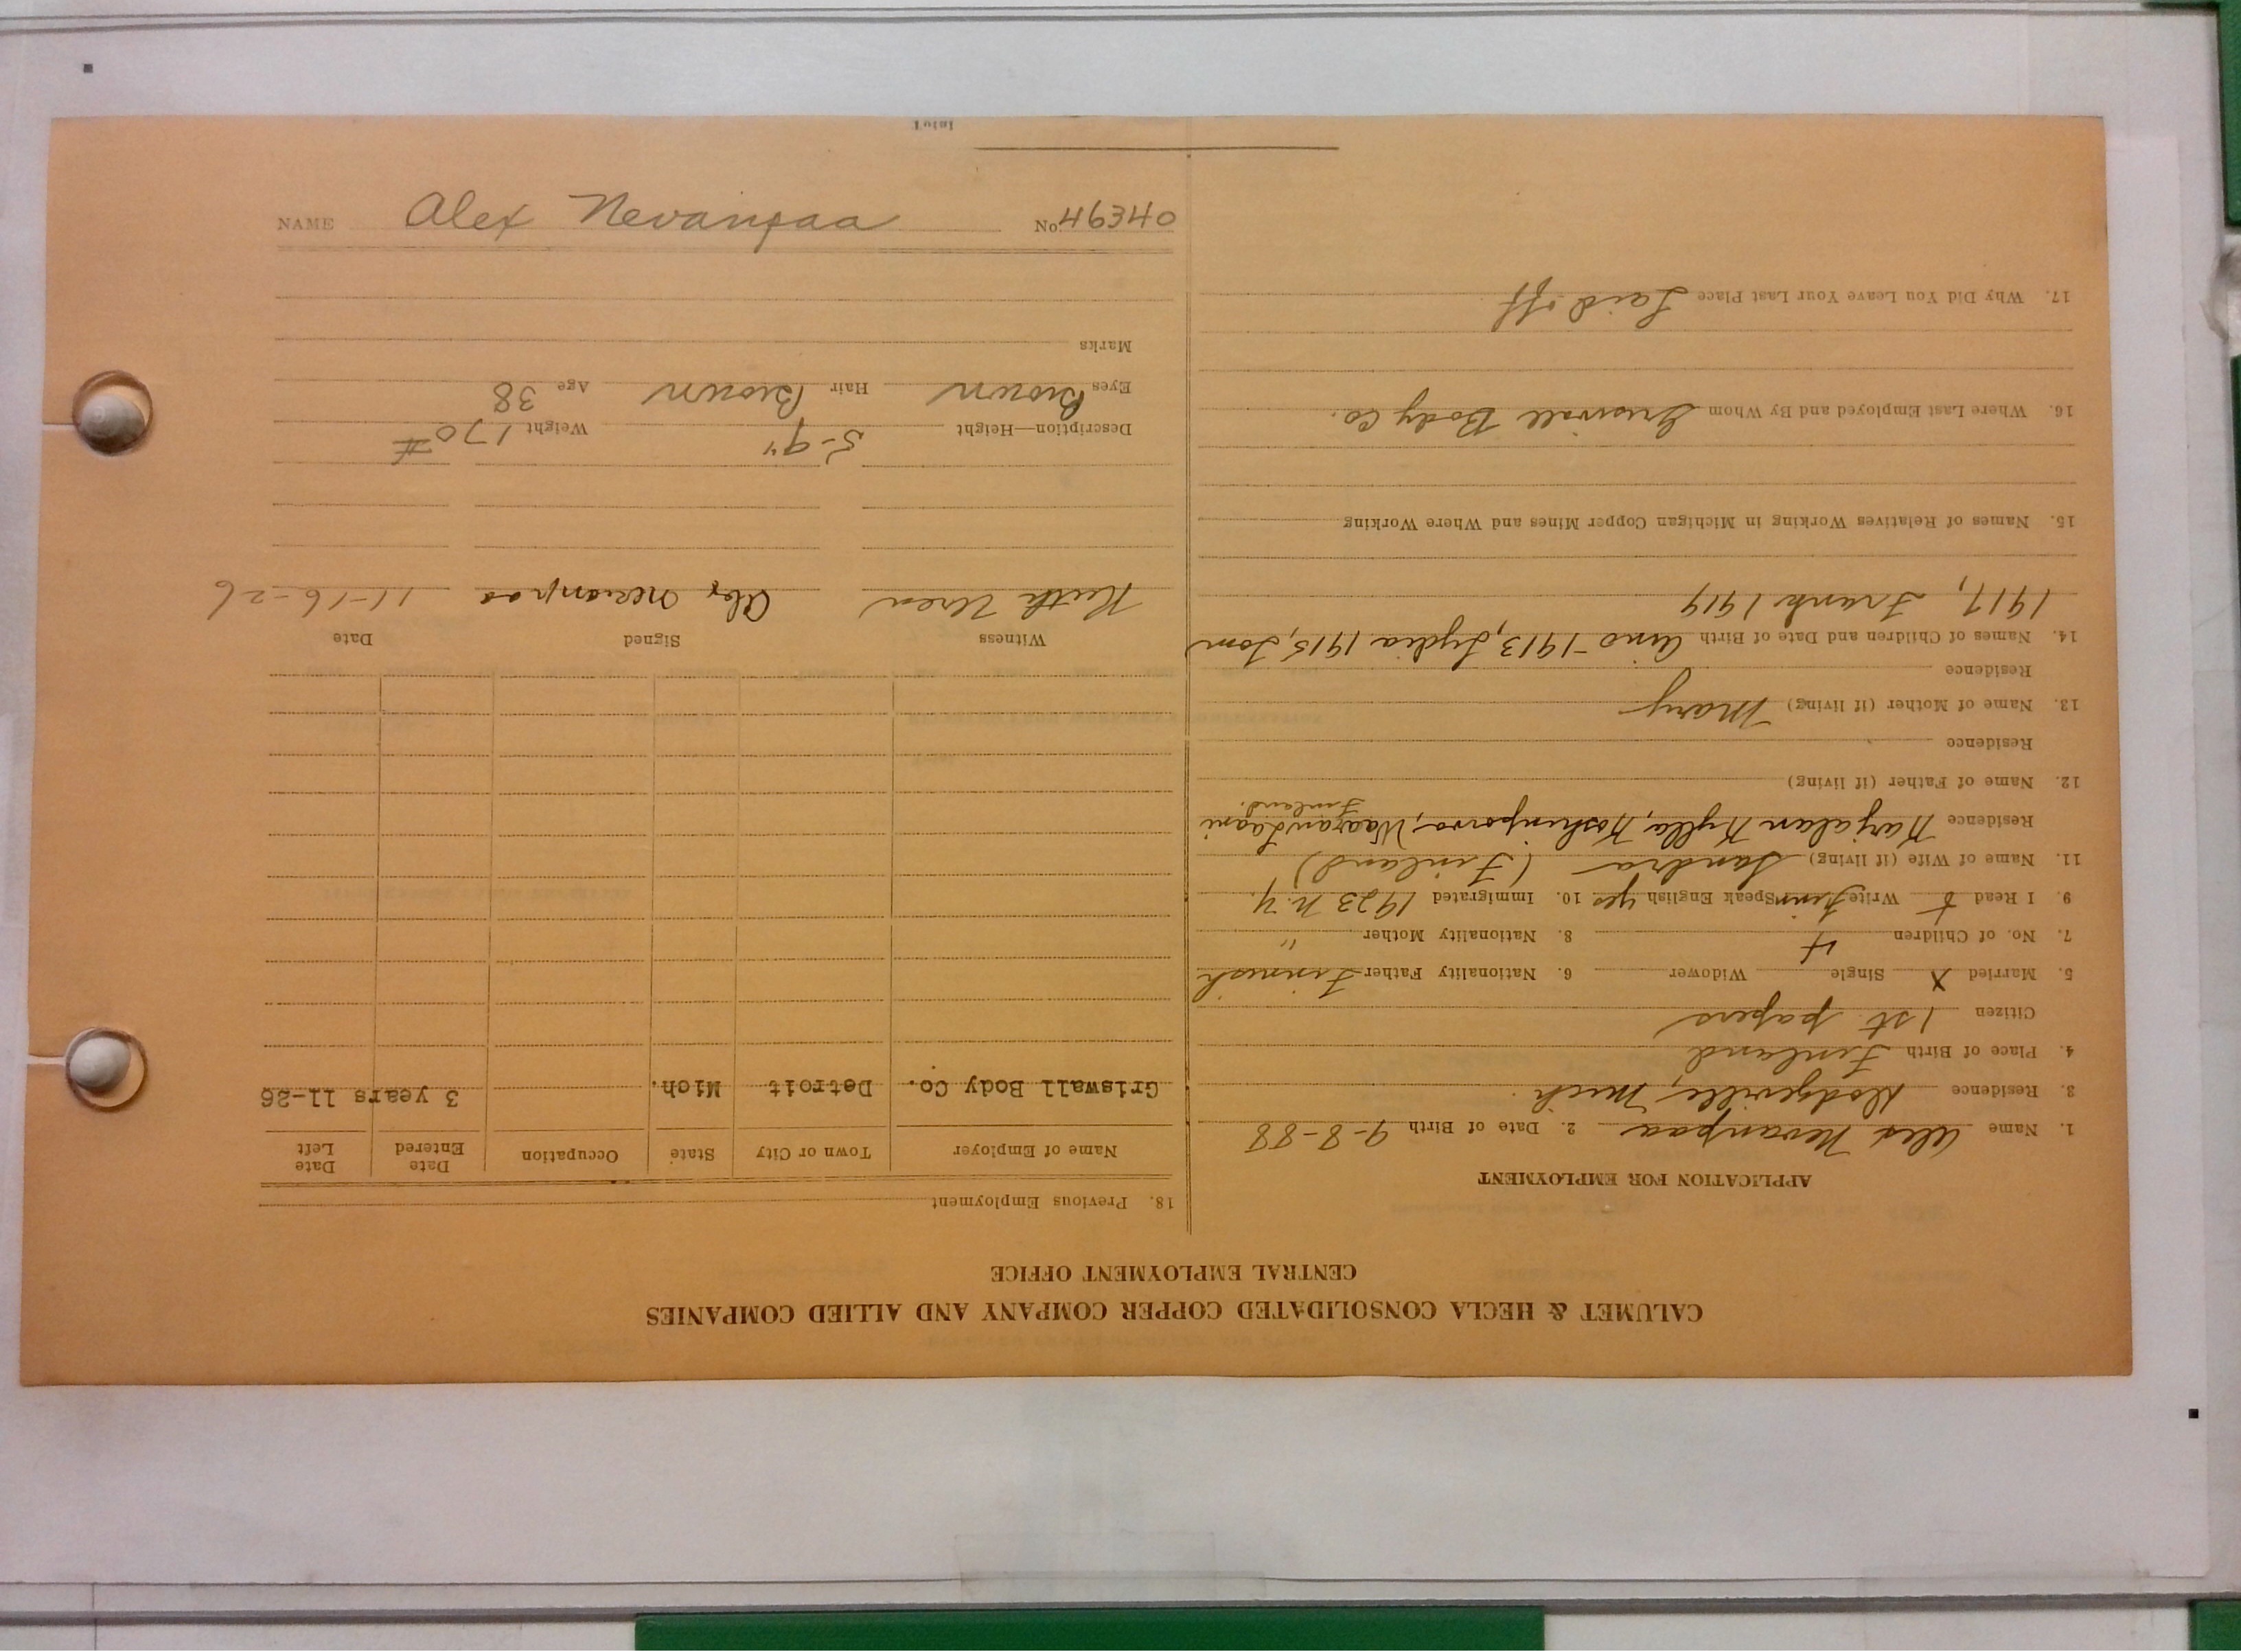 CALUMET & HECLA CONSOLIDATED COPPER COMPANY AND ALLIED COMPANIES
CENTRAL EMPLOYMENT OFFICE
APPLICATION FOR EMPLOYMENT
1. Name Alex Nevanpaa 2. Date of Birth 9-8-88
3. Residence Dodgeville, Mich.
4. Place of Birth Finland
Citizen 1st papers
5. Married X Single Widower 6. Nationality Father Finnish
7. No. of Children 4 8. Nationality Mother "
9. I Read & Write Finn Speak English yes 10. Immigrated 1923 N.Y.
11. Name of Wife (if living) Sandra (Finland)
Residence Karjalan Kylla, Koskenporva, Waaranlaani
Finland.
12. Name of Father (if living)
Residence
13. Name of Mother (if living) Mary
Residence
14. Names of Children and Date of Birth Aino - 1913, Lydia 1915, Tom
1917, Frank 1919
15. Names of Relatives Working in Michigan Copper Mines and Where Working
16. Where Last Employed and By Whom Griswall Body Co.
17. Why Did You Leave Your Last Place Laid off
18. Previous Employment
Name of Employer Town or City State Occupation Date Entered Date Left
Griswall Body Co. Detroit Mich. 3 years 11-26
Witness Signed Date
Ruth Uren Alex Nevanpaa 11-16-26
Description—Height 5-9" Weight 170#
Eyes Brown Hair Brown Age 38
Marks
NAME Alex Nevanpaa No. 46340